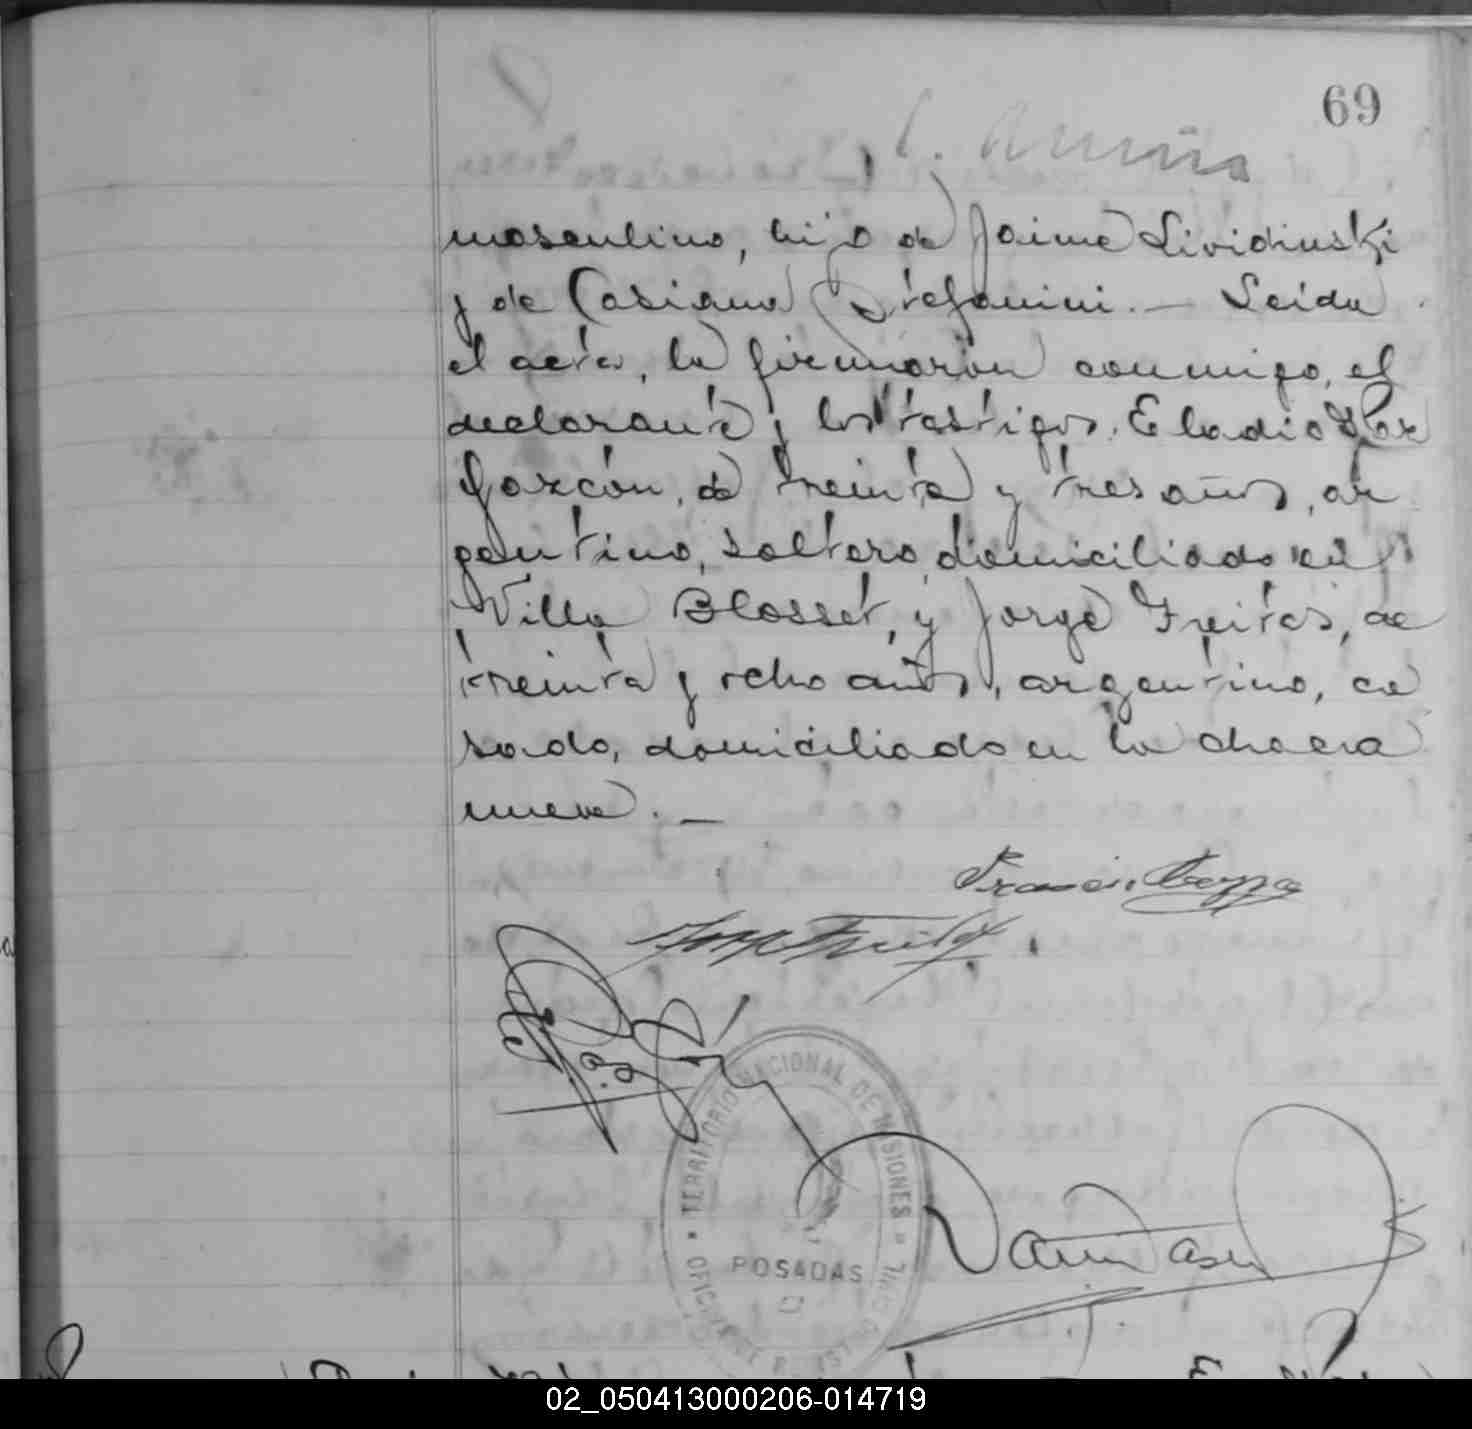 69
masculino, hijo de Jaime Lividinski
y de Casiana Stefanini. — Leida
el acta, la firmaron conmigo, el
declarante y los testigos. Eladio
Garzón, de treinta y tres años, ar
gentino, soltero, domiciliado en
Villa Blosset, y Jorge Freitas, de
treinta y ocho años, argentino, ca
sado, domiciliado en la chacra
nueve. —
Jorge Freitas
TERRITORIO NACIONAL DE MISIONES
POSADAS
OFICINA DE REGISTRO CIVIL
02_050413000206-014719